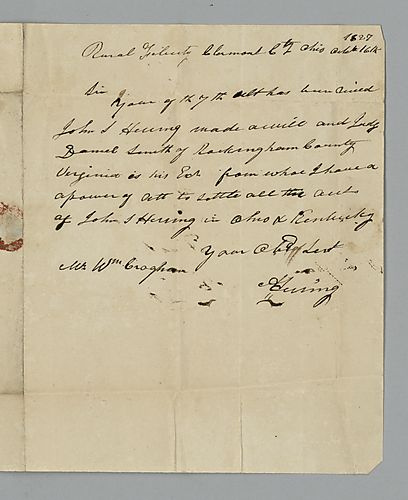 1827
Rural Felicity Clermont Cty Ohio Octbr 16th
Sir
Your of th 7th Ult has been recived
John S Hering made a will and Judg
Daniel Smith of Rockingham County
Virginia is his Exr from whoe I have a
a power of Att to settle all the act
of John S Hering in Ohio & Kentucky
Your Obt Sert
Mr Wm Croghan
Hering